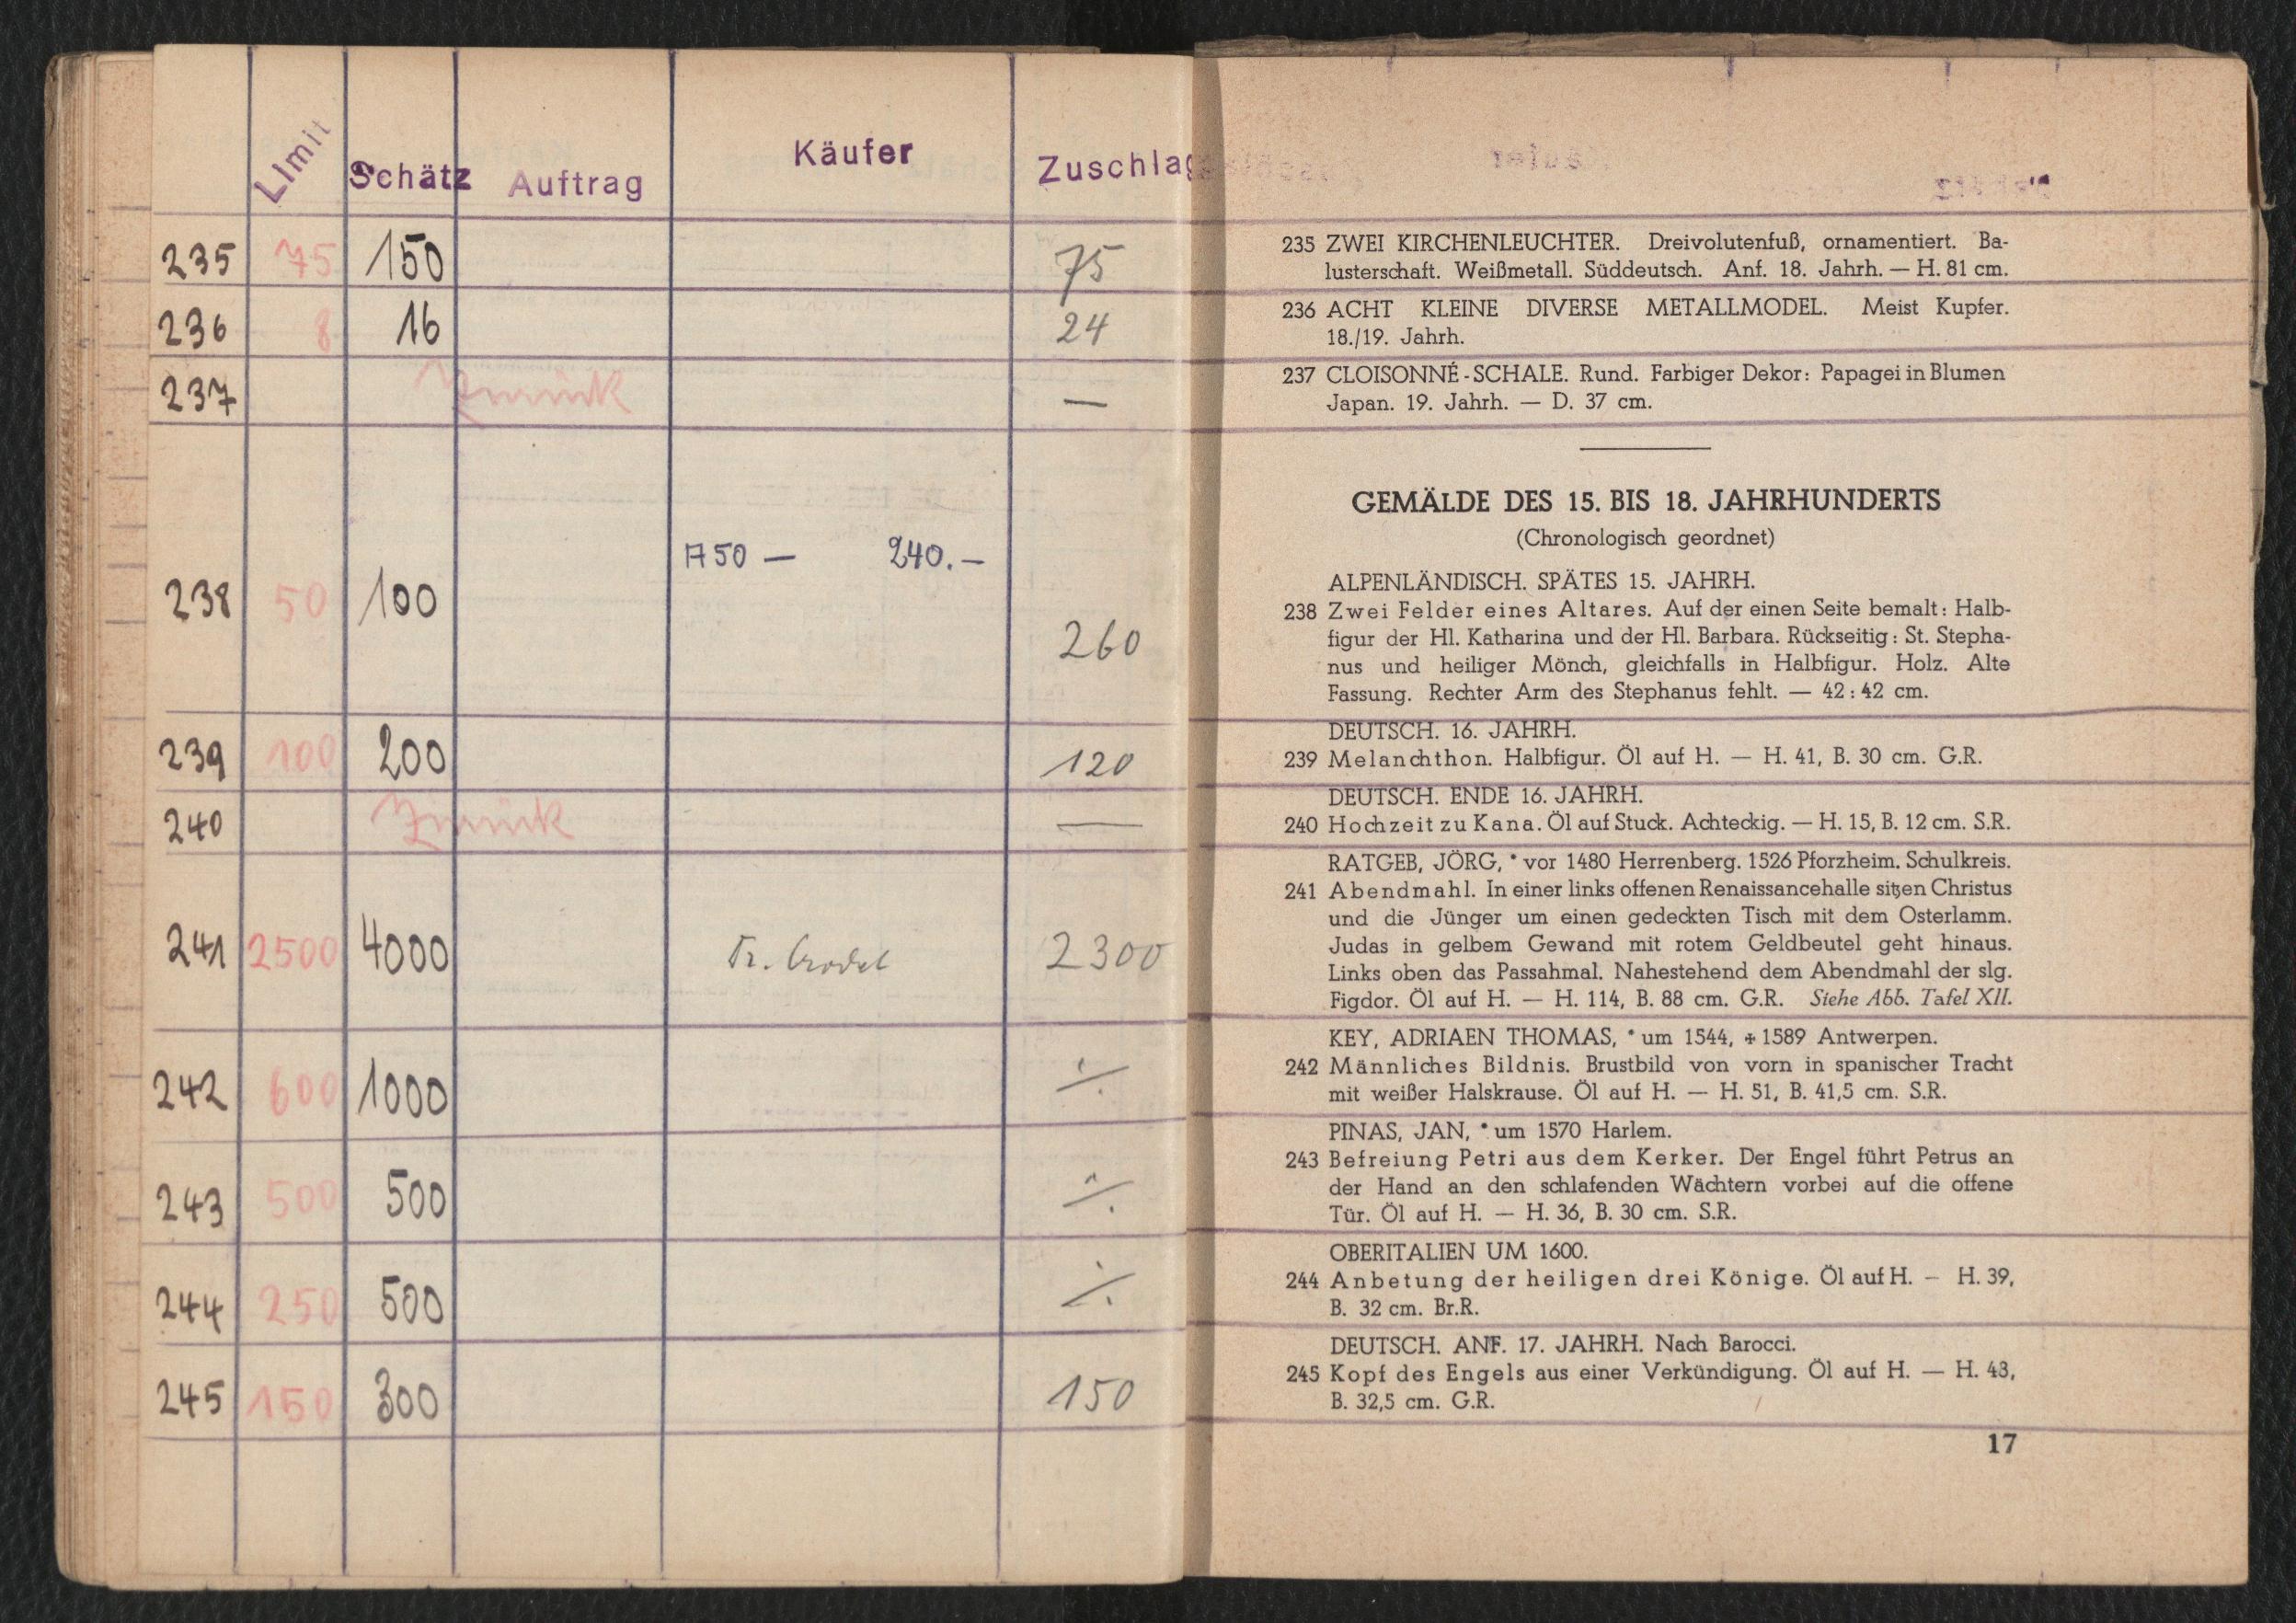 Limit Schätz Auftrag Käufer Zuschlag
235 75 150 75
236 8 16 24
237 Zurück —
750 — 240.—
238 50 100 260
239 100 200 120
240 Zurück —
241 2500 4000 2300
242 600 1000 ⁒
243 500 500 ⁒
244 250 500 ⁒
245 150 300 150
235 ZWEI KIRCHENLEUCHTER. Dreivolutenfuß, ornamentiert. Ba-
lusterschaft. Weißmetall. Süddeutsch. Anf. 18. Jahrh. — H. 81 cm.
236 ACHT KLEINE DIVERSE METALLMODEL. Meist Kupfer.
18./19. Jahrh.
237 CLOISONNÉ-SCHALE. Rund. Farbiger Dekor: Papagei in Blumen
Japan. 19. Jahrh. — D. 37 cm.
GEMÄLDE DES 15. BIS 18. JAHRHUNDERTS
(Chronologisch geordnet)
ALPENLÄNDISCH. SPÄTES 15. JAHRH.
238 Zwei Felder eines Altares. Auf der einen Seite bemalt: Halb-
figur der Hl. Katharina und der Hl. Barbara. Rückseitig: St. Stepha-
nus und heiliger Mönch, gleichfalls in Halbfigur. Holz. Alte
Fassung. Rechter Arm des Stephanus fehlt. — 42 : 42 cm.
DEUTSCH. 16. JAHRH.
239 Melanchthon. Halbfigur. Öl auf H. — H. 41, B. 30 cm. G.R.
DEUTSCH. ENDE 16. JAHRH.
240 Hochzeit zu Kana. Öl auf Stuck. Achteckig. — H. 15, B. 12 cm. S.R.
RATGEB, JÖRG, * vor 1480 Herrenberg. 1526 Pforzheim. Schulkreis.
241 Abendmahl. In einer links offenen Renaissancehalle sitzen Christus
und die Jünger um einen gedeckten Tisch mit dem Osterlamm.
Judas in gelbem Gewand mit rotem Geldbeutel geht hinaus.
Links oben das Passahmal. Nahestehend dem Abendmahl der slg.
Figdor. Öl auf H. — H. 114, B. 88 cm. G.R. Siehe Abb. Tafel XII.
KEY, ADRIAEN THOMAS, * um 1544, ✠ 1589 Antwerpen.
242 Männliches Bildnis. Brustbild von vorn in spanischer Tracht
mit weißer Halskrause. Öl auf H. — H. 51, B. 41,5 cm. S.R.
PINAS, JAN, * um 1570 Harlem.
243 Befreiung Petri aus dem Kerker. Der Engel führt Petrus an
der Hand an den schlafenden Wächtern vorbei auf die offene
Tür. Öl auf H. — H. 36, B. 30 cm. S.R.
OBERITALIEN UM 1600.
244 Anbetung der heiligen drei Könige. Öl auf H. – H. 39,
B. 32 cm. Br.R.
DEUTSCH. ANF. 17. JAHRH. Nach Barocci.
245 Kopf des Engels aus einer Verkündigung. Öl auf H. — H. 43,
B. 32,5 cm. G.R.
17